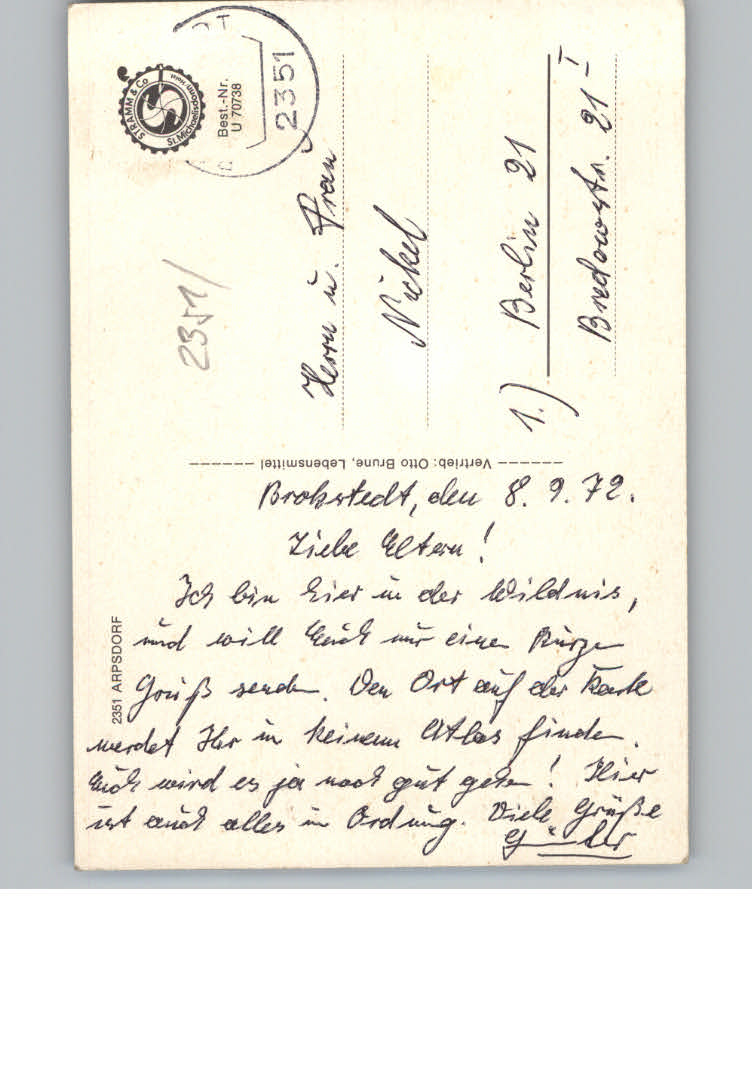 STRAMM & Co
St.Michaelisdonn/Holst.
Best.-Nr.
U 70738
2351
2351/
Herrn u. Frau
Nickel
1.) Berlin 21
Bredowstr. 21 I
Vertrieb: Otto Brune, Lebensmittel
2351 ARPSDORF
Brokstedt, den 8. 9. 72.
Liebe Eltern!
Ich bin hier in der Wildnis,
und will Euch nur einen kurzen
Gruß senden. Den Ort auf der Karte
werdet Ihr in keinem Atlas finden.
Euch wird es ja noch gut gehen! Hier
ist auch alles in Ordnung. Viele Grüße